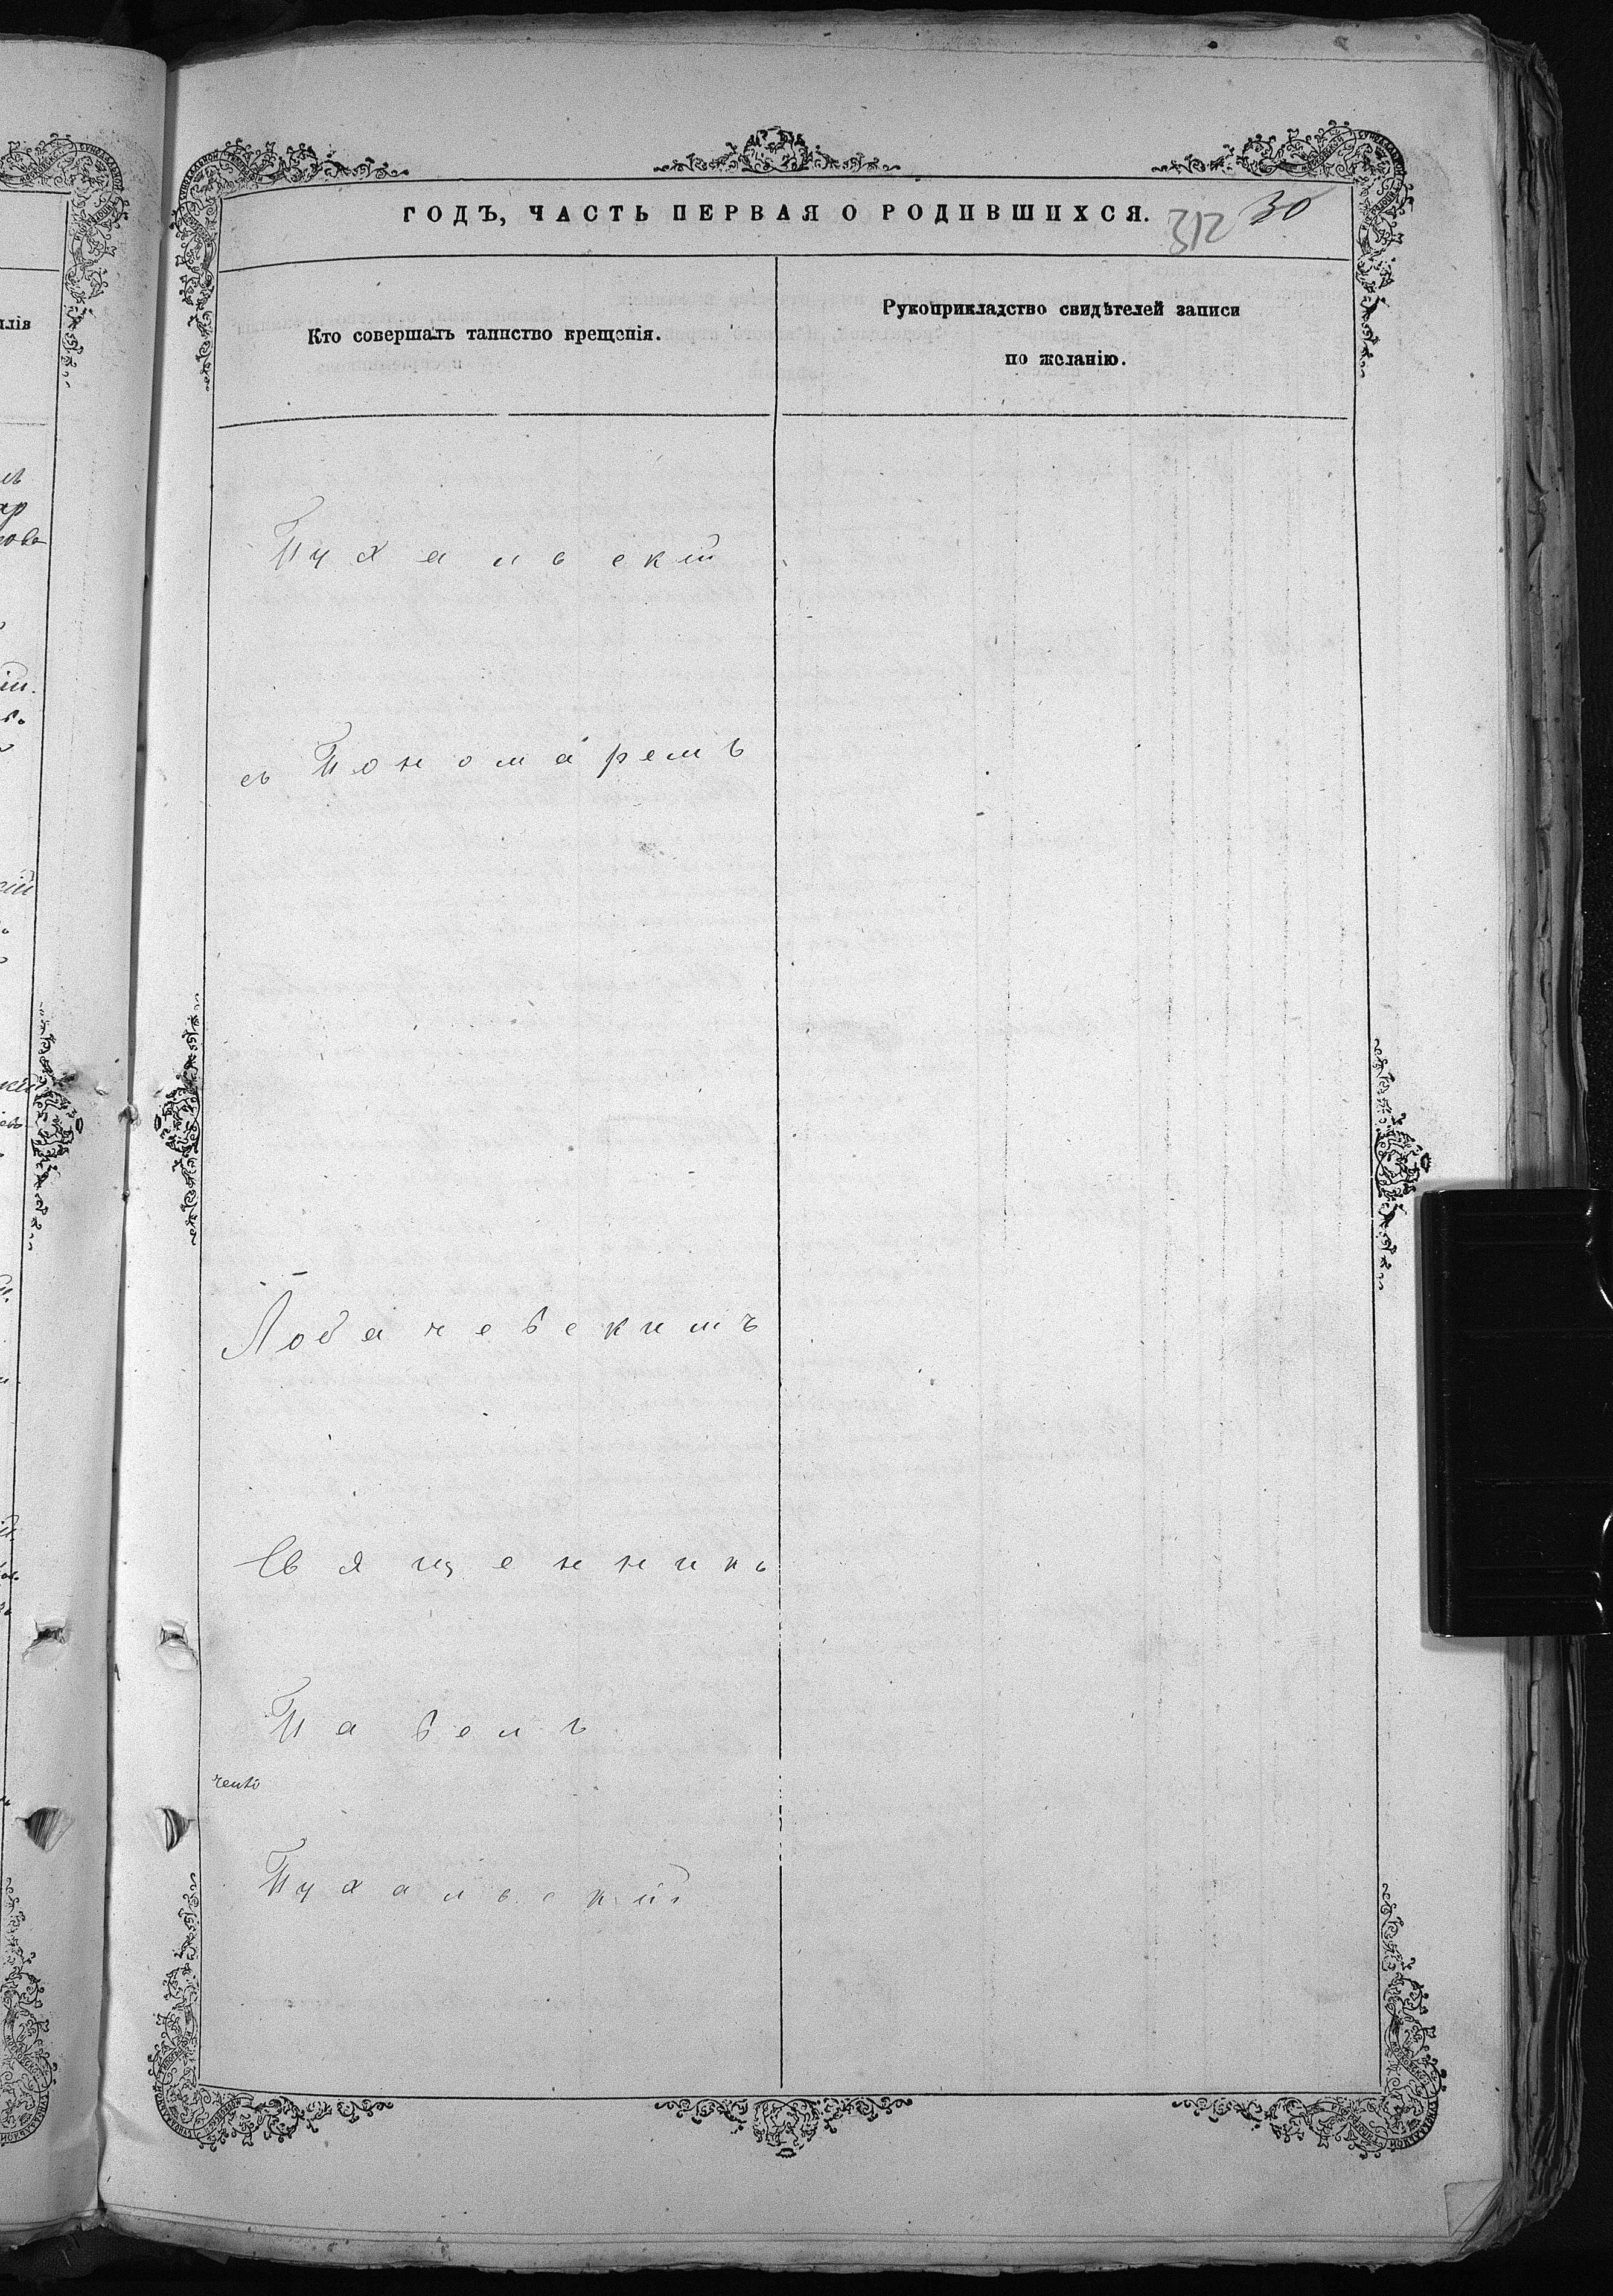 ГОДЪ, ЧАСТЬ ПЕРВАЯ О РОДИВШИХСЯ.
312 30
Кто совершалъ таинство крещенія.
Рукоприкладство свидѣтелей записи
по желанію.
Пухальскій
съ Пономаремъ
Лобачевскимъ
Священникъ
Павелъ
Пухальскій